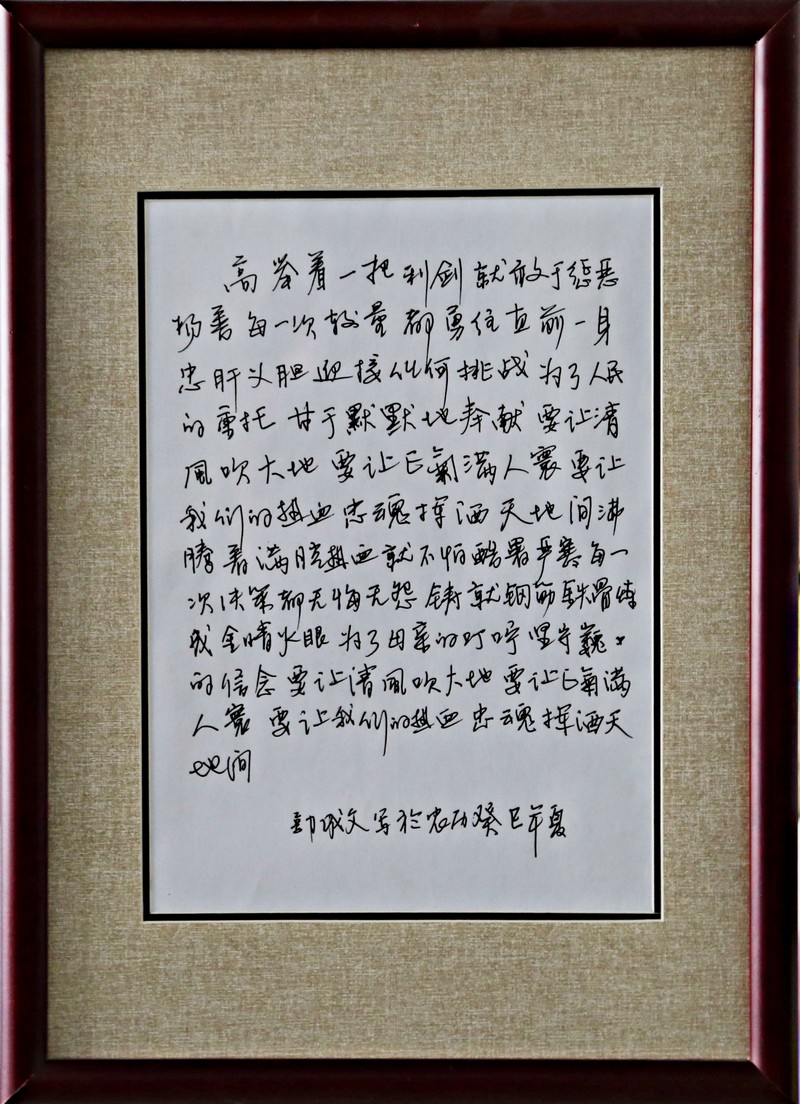 高举着一把利剑就敢于惩恶
扬善每一次较量都勇往直前一身
忠肝义胆迎接任何挑战为了人民
的重托甘于默默地奉献要让清
风吹大地要让正气满人寰要让
我们的热血忠魂挥洒天地间沸
腾着满腔热血就不怕酷暑严寒每一
次决策都无悔无怨铸就钢筋铁骨练
成金睛火眼为了母亲的叮咛坚守巍々
的信念要让清风吹大地要让正气满
人寰要让我们的热血忠魂挥洒天
地间
郭成文写于癸巳年夏